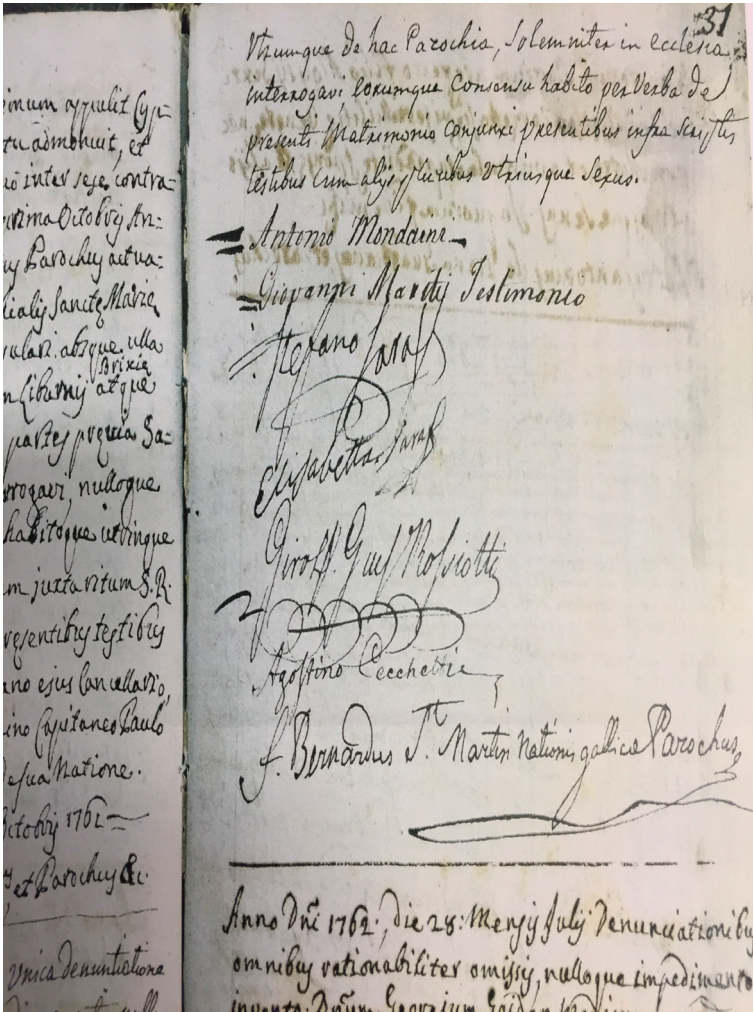 inum appulit Cyp=
tu admonuit, et
inter sese contra=
Octobris An=
Parochus actua=
Sanctę Marię
absque ulla
Brixię
Liburnij atque
partes Sa=
rrogavi, nulloque
habitoque utrinque
m juxta ritum S. R.
resentibus testibus
ano ejus Cancellario,
ino Capitaneo Paulo
de sua Natione.
Octobris 1761
et Parochus &c.
Unica denuntiatione
31
Vtrumque de hac Parochia, Solemniter in ecclesia
interrogavi, eorumque Consensu habito per Verba de
presenti Matrimonio Conjunxi presentibus infra scriptis
testibus cum alijs pluribus Vtriusque Sexus.
Antonio
Giovanni Testimonio
Stefano
Elisabetta
Rossiotti
Agostino Cecchetti
f. Bernardus St. Martin Nationis gallicæ Parochus
Anno Dni 1762, die 28: Mensis Julij Denunciationibus
omnibus rationabiliter omissis, nulloque impedimento
invento Dnum Georgium